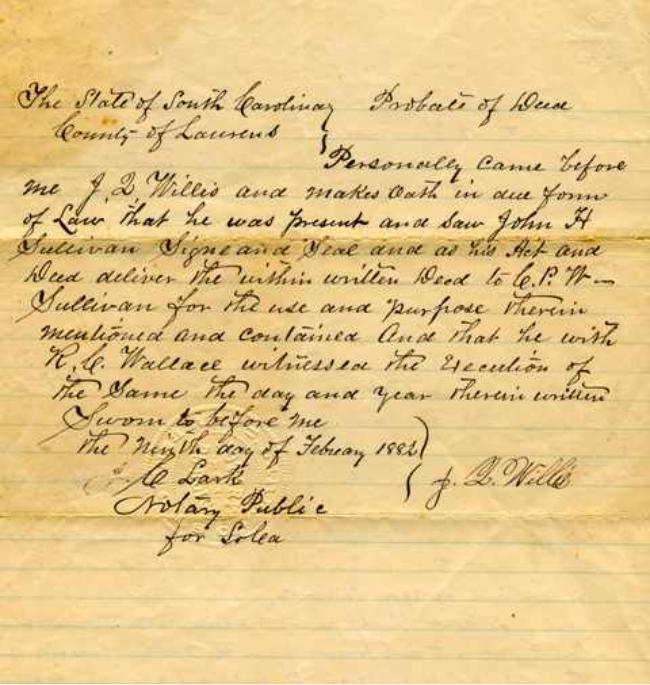 The State of South Carolina } Probate of Deed
County of Laurens
Personally came before
me J. Q Willis and makes Oath in due form
of Law that he was present and saw John H
Sullivan Signe and Seal and as his Act and
Deed deliver the within written Deed to C. P. W
Sullivan for the use and purpose therein
mentioned and contained And that he with
R. C. Wallace witnessed the Execution of
the Same the day and year therein written
Sworn to before me
the Ninth day of Febuary 1882 )
C Lark ( J. Q. Willis
Notary Public
for